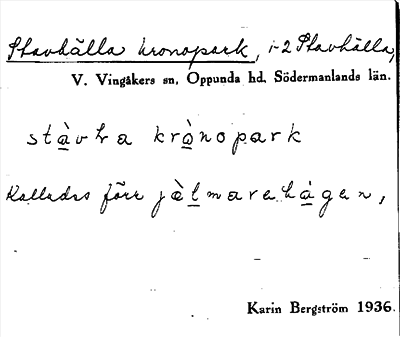 Stavhälla kronopark, i-2 Stavhälla,
V. Vingåkers sn, Oppunda hd, Södermanlands län.
stàvha krònopark
Kallades förr jèlmarehágen,
Karin Bergström 1936.